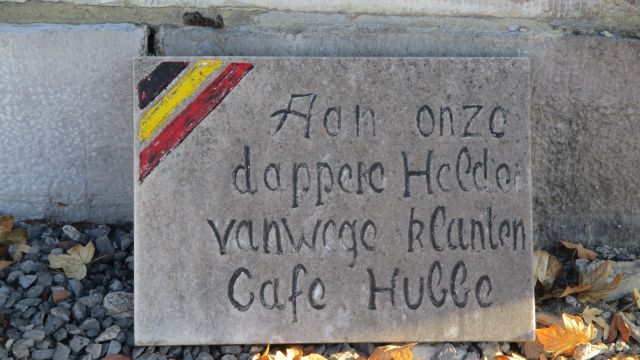 Aan onze
dappere Helden
vanwege klanten
Cafe Hubbe